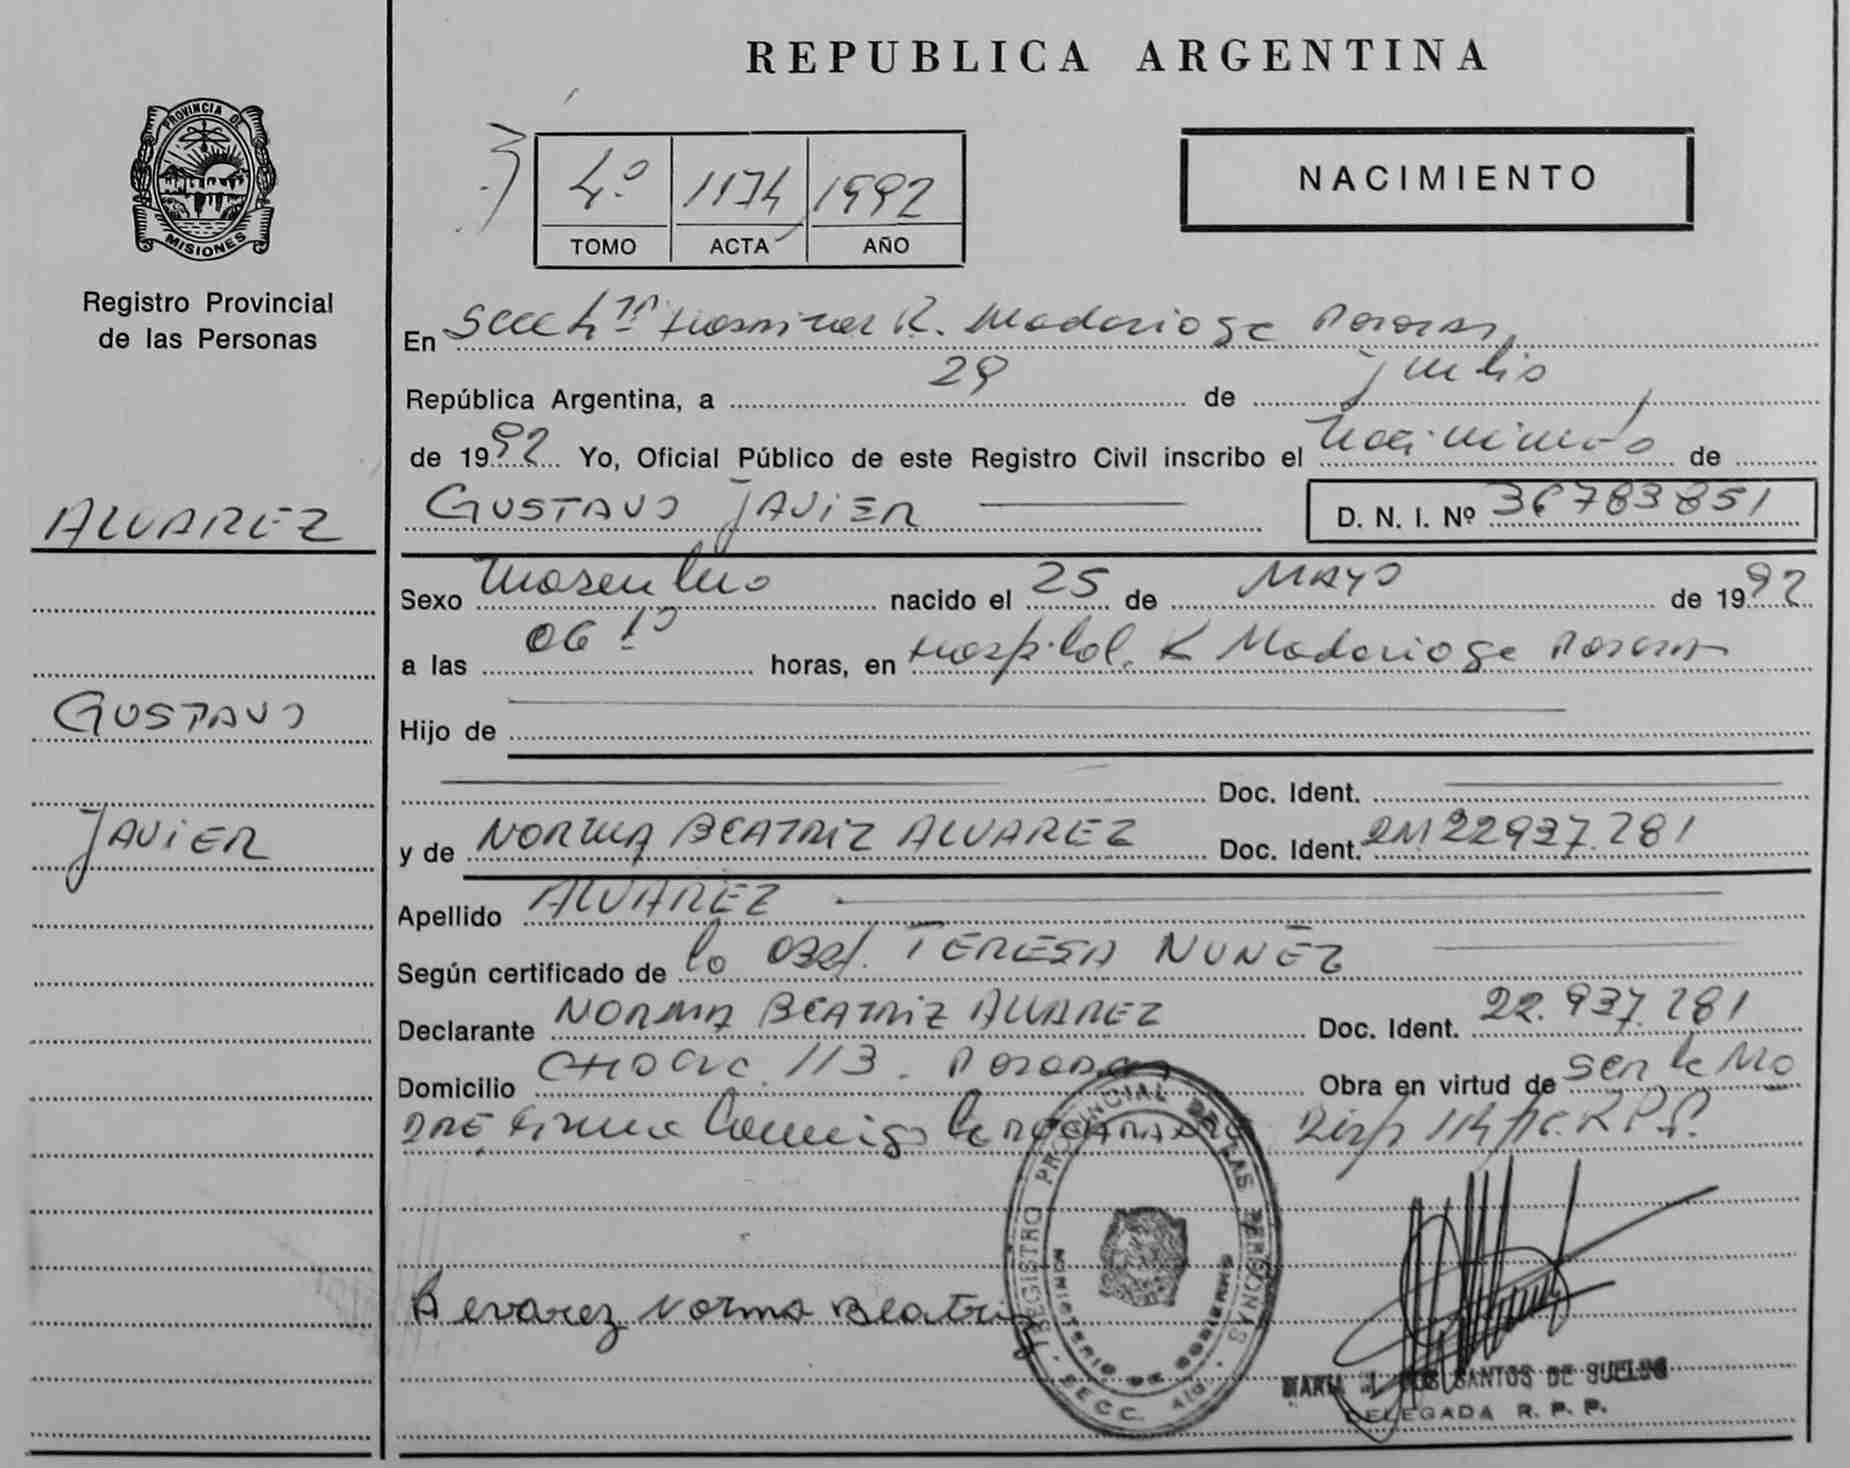 REPUBLICA ARGENTINA
PROVINCIA DE
MISIONES
Registro Provincial
de las Personas
4º 1174 1992
TOMO ACTA AÑO
NACIMIENTO
En Secc 4ta Hospital R. Madariaga Posadas,
República Argentina, a 29 de julio
de 1992 Yo, Oficial Público de este Registro Civil inscribo el Nacimiento de
GUSTAVO JAVIER D. N. I. Nº 36783851
ALVAREZ
GUSTAVO
JAVIER
Sexo Masculino nacido el 25 de MAYO de 1992
a las 06 10 horas, en Hospital R Madariaga Posadas
Hijo de
Doc. Ident.
y de NORMA BEATRIZ ALVAREZ Doc. Ident. DNI 22937.281
Apellido ALVAREZ
Según certificado de la Obst. TERESA NUÑEZ
Declarante NORMA BEATRIZ ALVAREZ Doc. Ident. 22.937.281
Domicilio 113. Posadas Obra en virtud de ser la Madre
Firma Conmigo la Disp 114 R.P.P.
REGISTRO PROVINCIAL DE LAS PERSONAS
MINISTERIO DE GOBIERNO
SECC. 4ta
Alvarez Norma Beatriz
MARIA J. DOS SANTOS DE SUELDO
DELEGADA R. P. P.